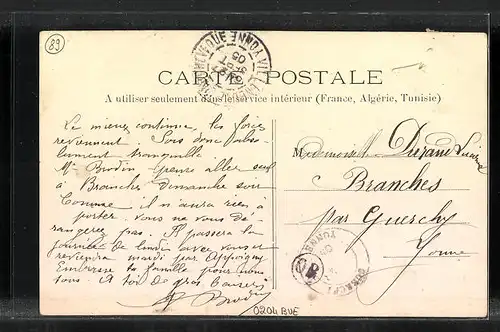 83
CARTE POSTALE
A utiliser seulement dans le service intérieur (France, Algérie, Tunisie)
Le mieux continue, les forces
reviennent. Sois donc
tranquille
Mr Brodin pense aller seul
à Branches dimanche soir
Comme il n'aura rien à
porter. vous ne vous dé
rangerez pas. Il passera la
journée de lundi avec vous et
reviendra mardi par Appoigny
Embrasse ta famille pour nous
tous. A toi de gros baisers
Brodin
Mademoiselle Durand
Branches
par Guerchy
Yonne
YONNE
YONNE
0204 BUE